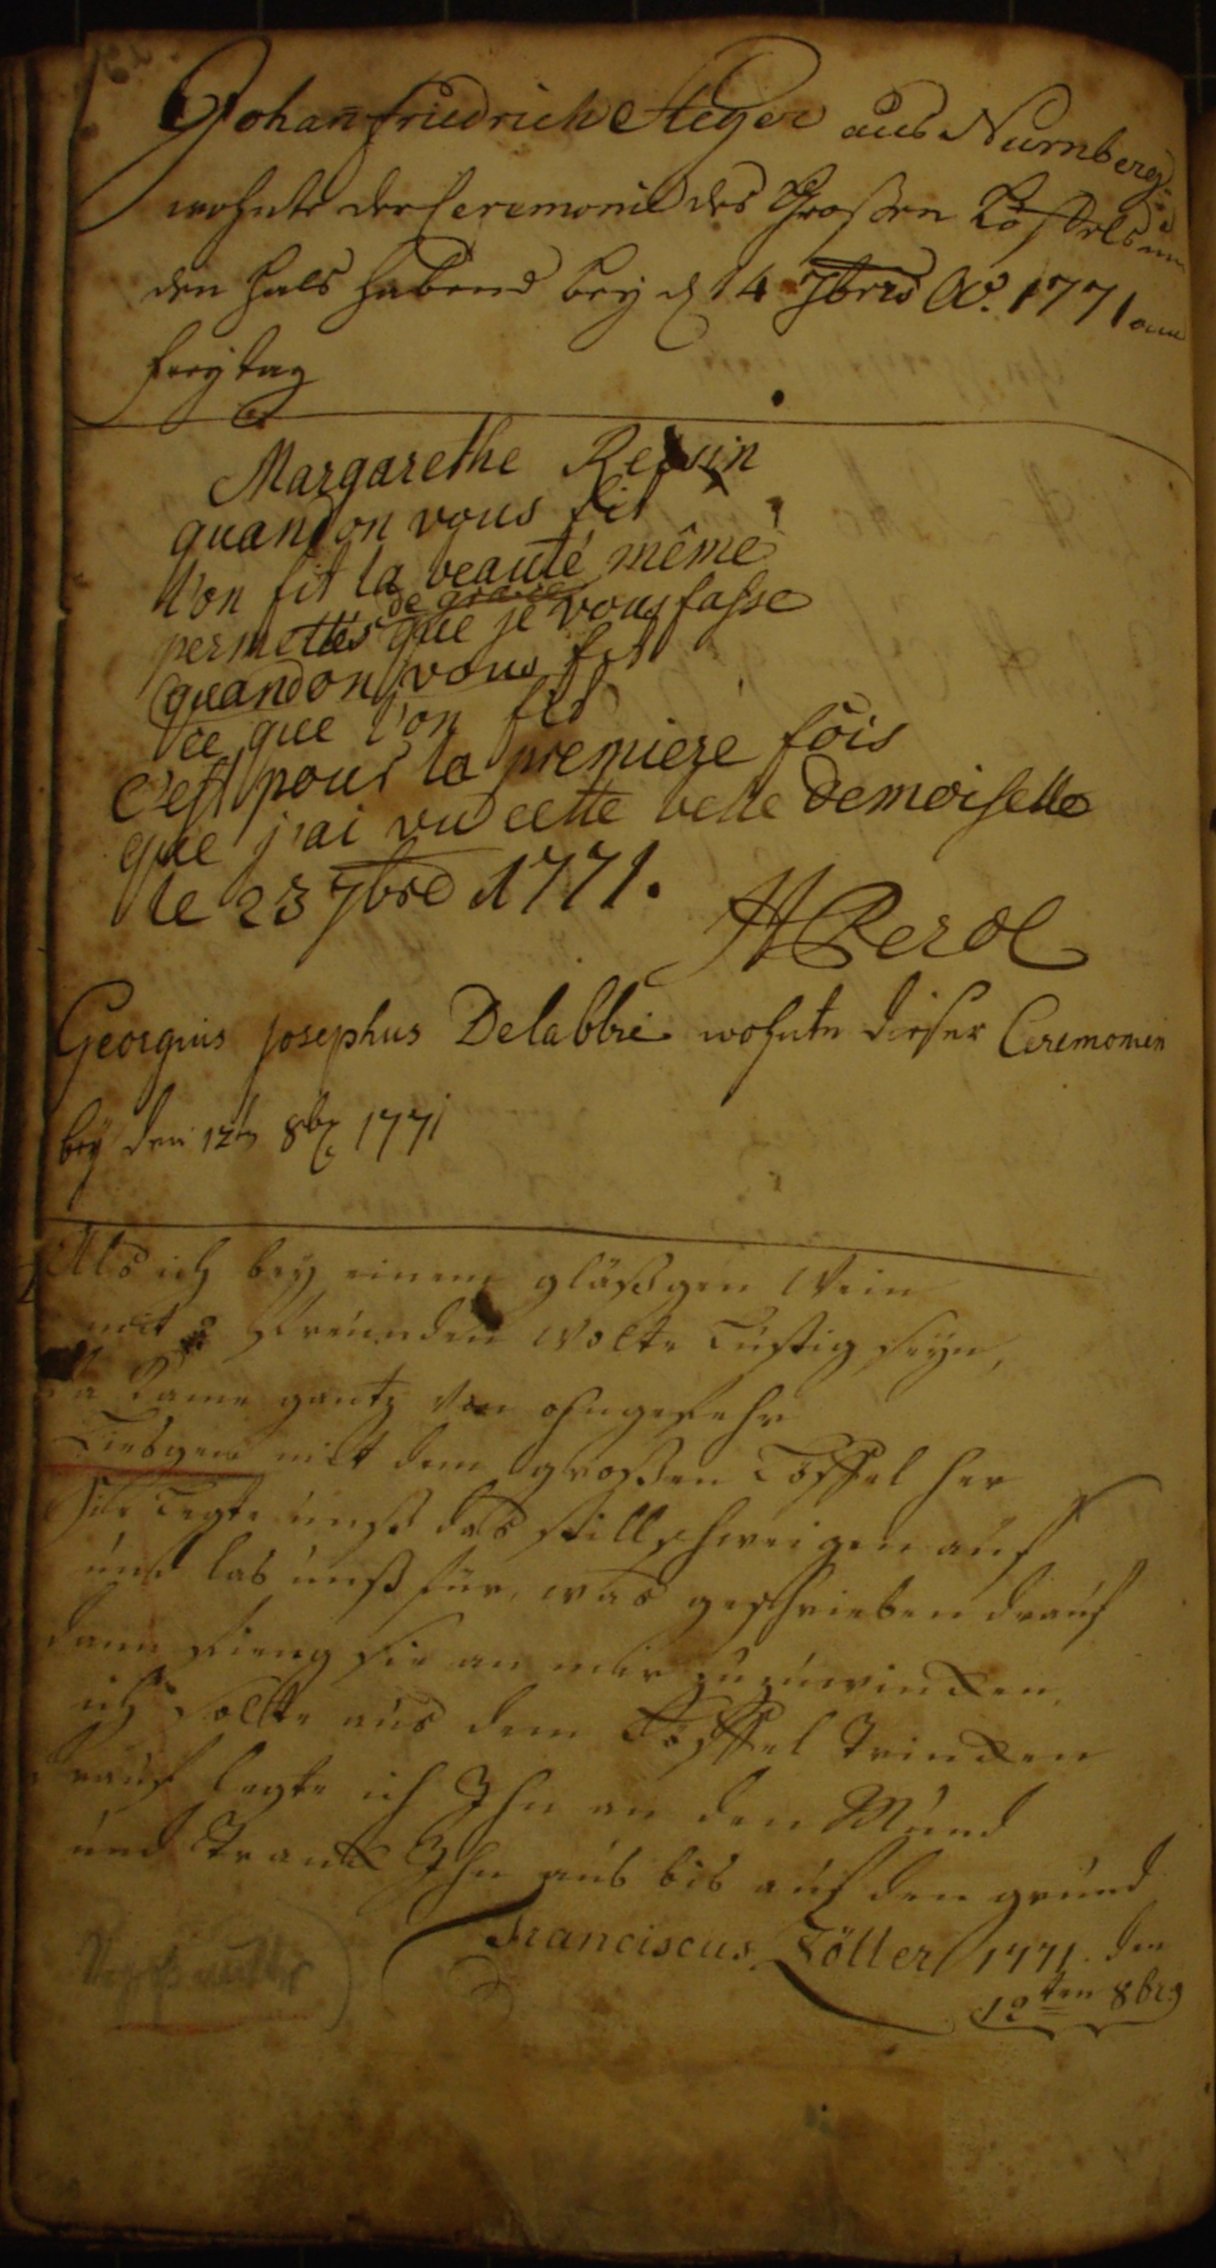 Johan friedrich Steger aus Nurnberg
wohnte der Ceremonie des Großen Löffels um
den Hals habend bey d 14 7bris Ao. 1771 am
freytag
Margarethe
quand on vous fit
l'on fit la beauté même
de grace
permettés que je vous fasse
quand on vous fit
ce que l'on fit
c'est pour la premiere fois
que j'ai vu cette belle demoiselle
le 23 7bre 1771.
Perol
Georgius Josephus Delabbie wohnte dieser Ceremonien
bey den 12ten 8br 1771
Als ich bey einem gläßgen Wein
mit Freunden wolte Lustig seyn,
da kame gantz von ohngefehr
Liesgen mit dem großen Löffel her
Sie Legte unß das stillschweigen auf
und las unß für, was geschrieben drauf
dann fieng sie an mir zuzuwincken,
ich sollte aus dem Löffel Trincken
drauf legte ich Ihn an den Mund
und Tranck Ihn aus bis auf den grund
Franciscus Zöller 1771. den
12ten 8bris